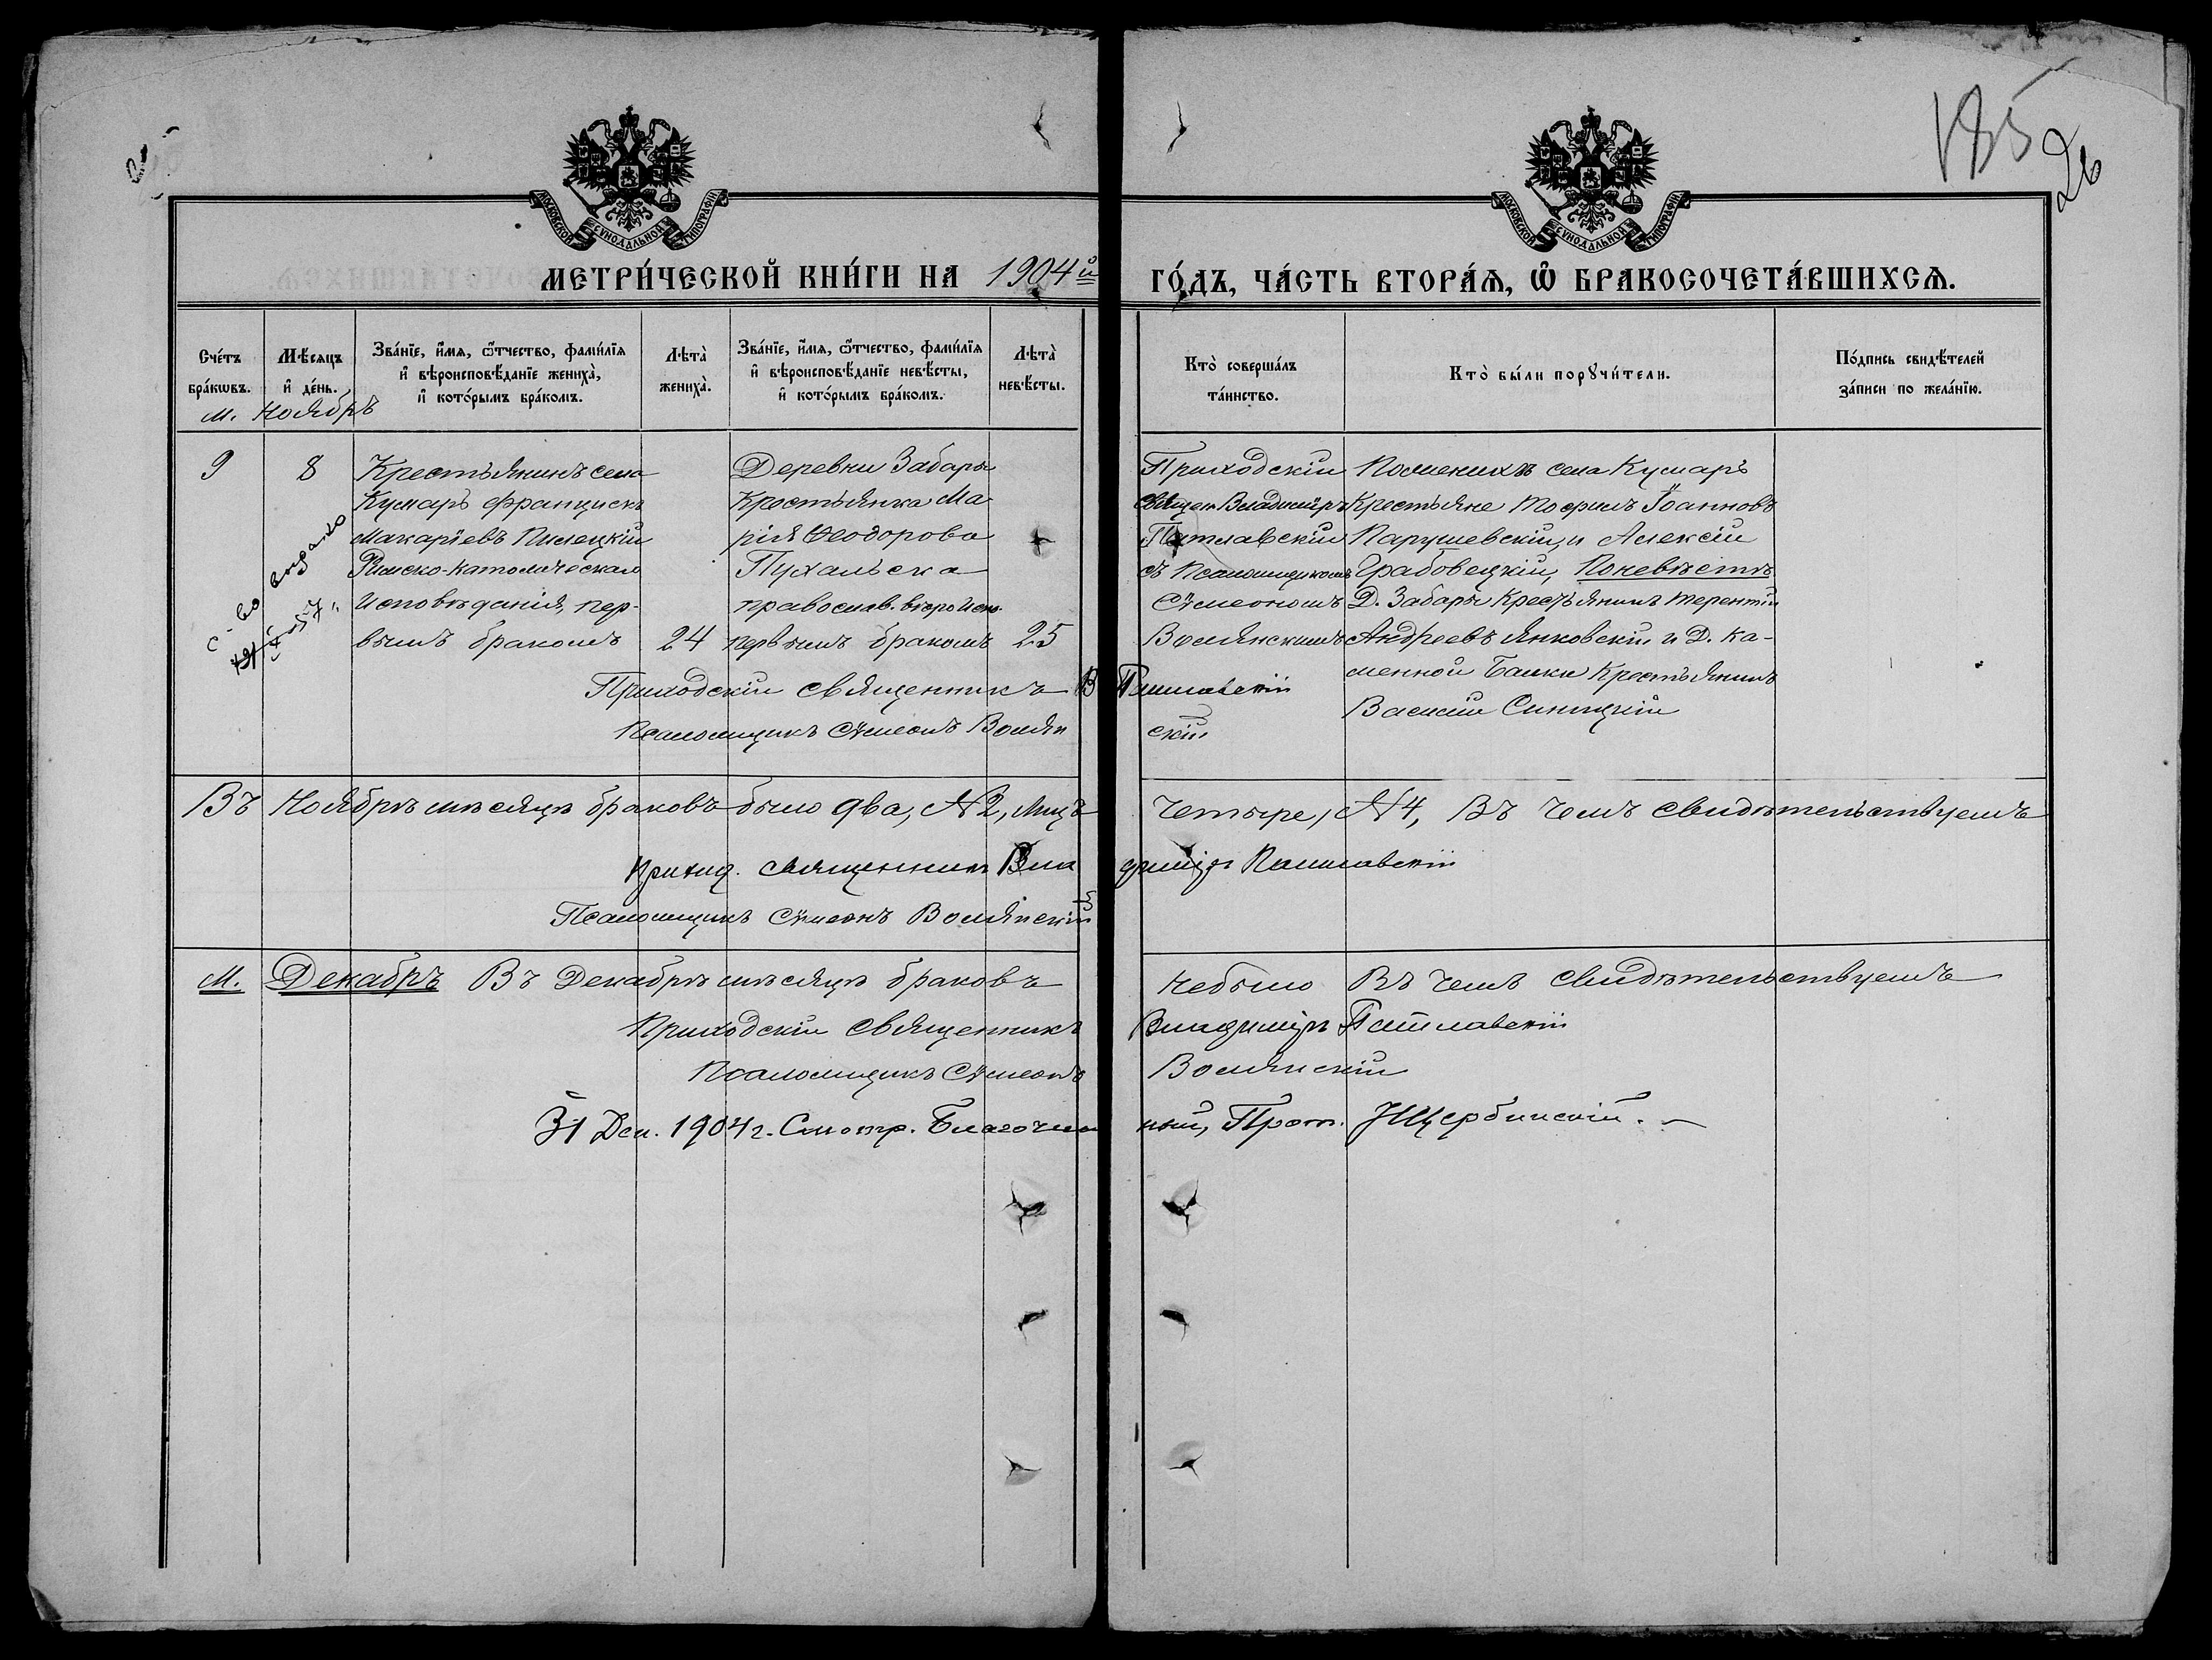 185
26
МОСКОВСКОЙ СѴНОДАЛЬНОЙ ТИПОГРАФІИ
МОСКОВСКОЙ СѴНОДАЛЬНОЙ ТИПОГРАФІИ
МЕТРИ́ЧЕСКОЙ КНИ́ГИ НА 1904й ГО́ДЪ, ЧА́СТЬ ВТОРА́Ѧ, Ѽ БРАКОСОЧЕТА́ВШИХСѦ.
Сче́тъ бра́кѡвъ.
Мѣ́сяцъ и҆ де́нь.
Зва́нїе, и҆́мя, ѻ҆́тчество, фами́лїя и҆ вѣроисповѣ́данїе жениха̀, и҆ кото́рымъ бра́комъ.
Лѣта̀ жениха̀.
Зва́нїе, и҆́мя, ѻ҆́тчество, фами́лїя и҆ вѣроисповѣ́данїе невѣ́сты, и҆ кото́рымъ бра́комъ.
Лѣта̀ невѣ́сты.
Кто̀ соверша́лъ та́инство.
Кто̀ бы́ли порꙋчи́тели.
По́дпись свидѣ́телей за́писи по жела́нїю.
м. Ноябрь
9
8
с-во выдано
Крестьянинъ села
Кумаръ Францискъ
Макаріевъ Пилецкій
Римско-католическаго
исповѣданія, пер-
вымъ бракомъ
24
Деревни Забары
Крестьянка Ма
рія Ѳеодорова
Пухальска
православ. вѣроиспо.
первымъ бракомъ
25
Приходскій
Священ Владиміръ
съ Псаломщикомъ
Сѵмеономъ
Волянскимъ
Поженихѣ села Кумаръ
Крестьяне Тофилъ Іоанновъ
Парушевскій, и Алексій
Грабовецкій, Поневѣстѣ
Д. Забары Крестьянинъ Терентій
Андреевъ Янковскій и Д. Ка-
менной Балки Крестьянинъ
Василій Синицкій
Приходскій священникъ В
Псаломщикъ Сѵмеонъ Волян
скій
Въ Ноябрѣ мѣсяцѣ браковъ было два, № 2, лицъ четыре, № 4, Въ чемъ свидѣтельствуемъ
приход. священникъ Вла
диміръ
Псаломщикъ Сѵмеонъ Волянскій
М. Декабрь Въ Декабрѣ мѣсяцѣ браковъ небыло Въ чемъ свидѣтельствуемъ
Приходскій священникъ Владиміръ
Псаломщикъ Сѵмеонъ Волянскій
31 Дек. 1904 г. Смотр. Благочин ный, Прот. Щербинскій.